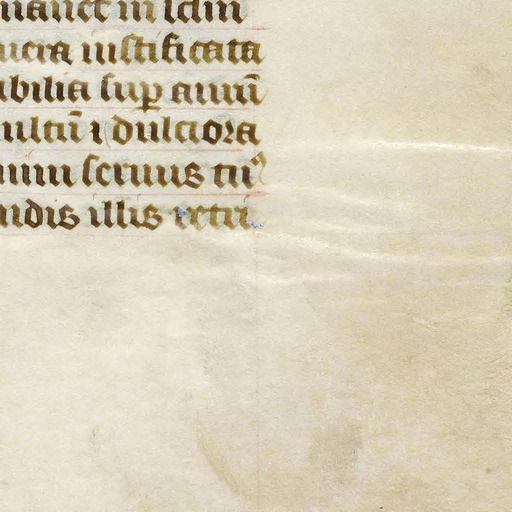 manet in sclm
uera iustificata
abilia sup auruʒ
ultū ⁊ dulciora
num seruus tuꝰ
ndis illis retri